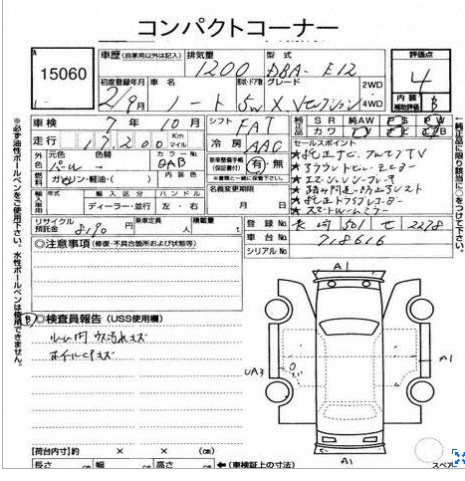 コンパクトコーナー
15060
車歴 (自家用以外は記入) 排気量 型式 評価点
1200 DBA-E12 4
初度登録年月 車名 形状・ドア数 グレード 2WD 4WD 内装補助評価 B
ノート 5W X
車検 7年10月 シフト FAT
走行 17,200 Km マイル 冷房 AAC
純正品 SR 純AW PS PW
カワ TV
外色 元色 色替 カラーNo. セールスポイント
パール QAB
燃料 ガソリン・軽油・( ) 内装色 車両整備手帳(保証書付) 有・無
★アラウンドビューモニター
★エマージェンシーブレーキ
輸入車用 年式 輸入区分 ハンドル 名義変更期限
ディーラー・並行 左・右 月 日
★スマートルームミラー
リサイクル預託金 8190円 乗車定員 人 積載量 t
登録No. 長崎 501 せ 2278
車台No. 718616
シリアルNo.
◎注意事項 (修復・不具合箇所および状態等)
◎検査員報告 (USS使用欄)
ルーム内 ウス汚れキズ
ホイールCPキズ
A1
UA3
A1
A1
【荷台内寸】約 × × (cm)
長さ cm 幅 cm 高さ cm ←(車検証上の寸法)
スペア
※必ず油性ボールペンをご使用下さい。水性ボールペンは使用できません。
←純正品に限り該当に○をつけて下さい。